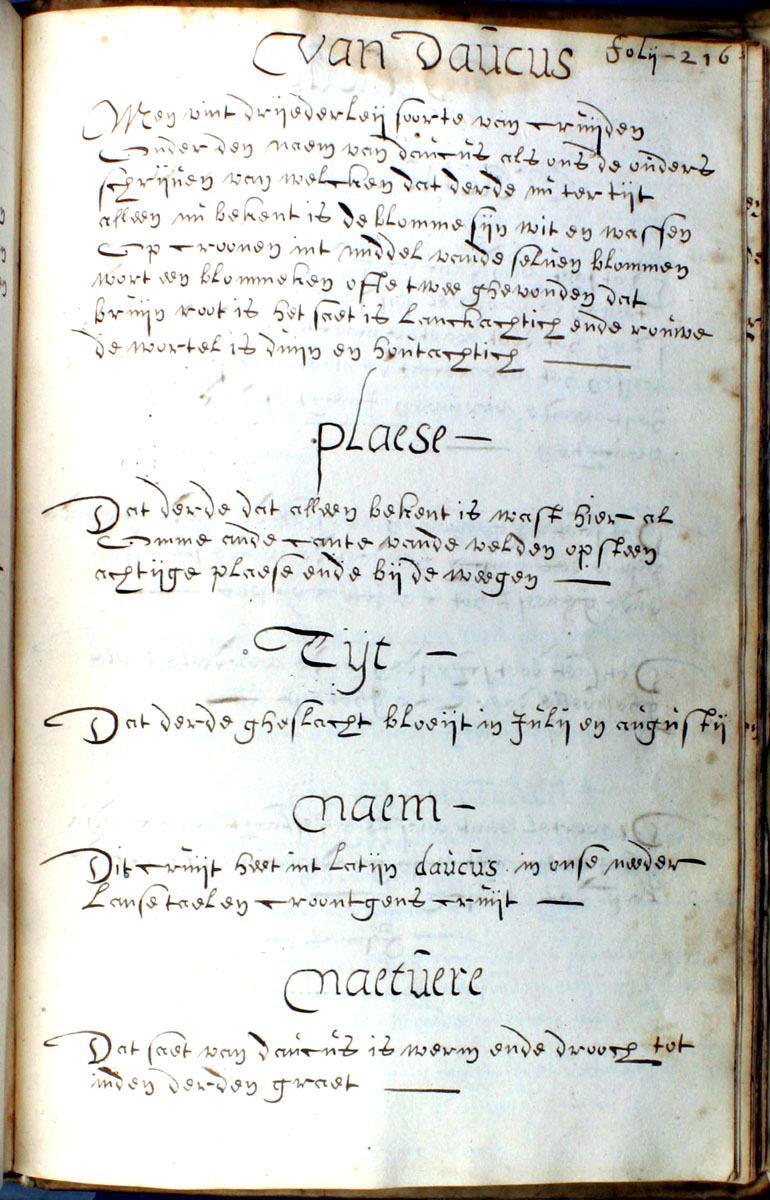 Van Daucus folij - 216
Men vint drijederleij soorte van cruijden
Onder den naem van daucus als ons de ouders
schrijven van welcken dat derde nu ter tijt
alleen nu bekent is de blomme sijn wit en wassen
Op croonen int middel vande selven blommen
wort een blommeken ofte twee ghevonden dat
bruijn root is het saet is lanckachtich ende rouwe
de wortel is duijn en houtachtich
plaese -
Dat derde dat alleen bekent is wast hier al
Omme ande cante vande velden op steen
achtijge plaese ende bij de weegen
Tijt -
Dat derde gheslacht bloeijt in Julij en augustij
Naem -
Dit cruijt heet int latijn daucus in onse neder
lanse taelen croontgens cruijt
Naetuere
Dat saet van daucus is werm ende drooch tot
inden derden graet